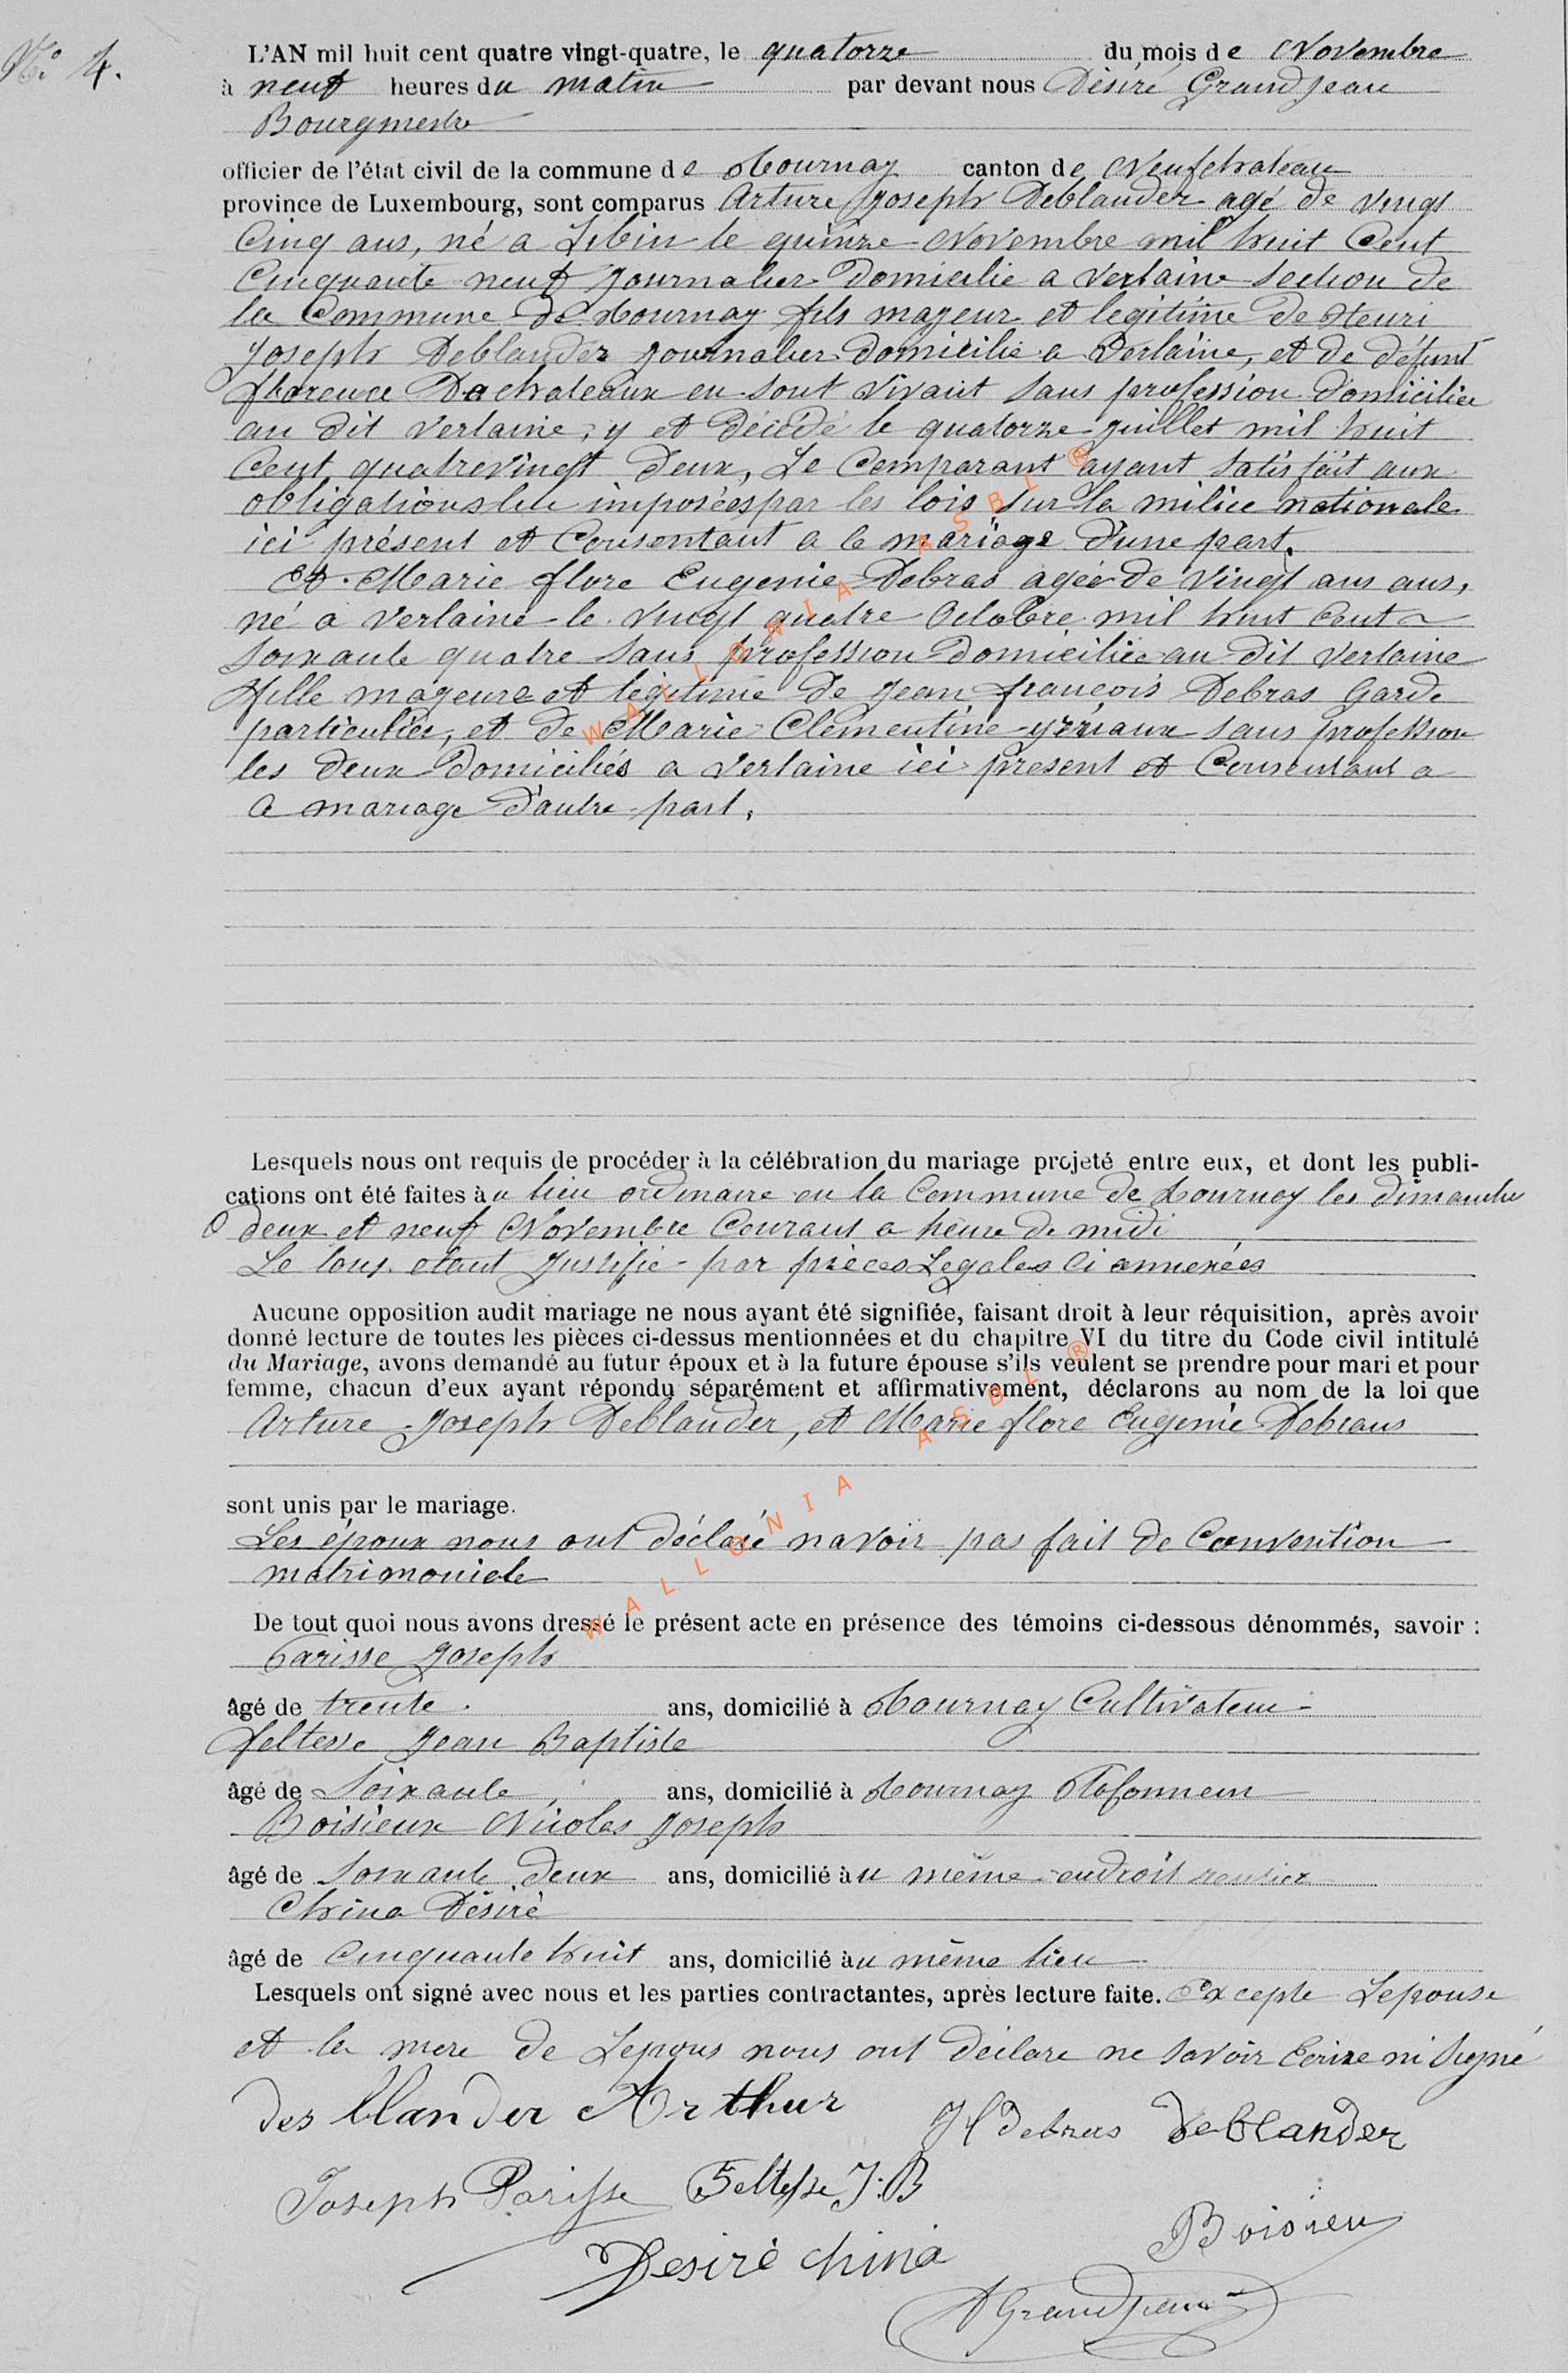 N.° 4.
L'AN mil huit cent quatre vingt-quatre, le quatorze du mois de Novembre
à neuf heures du matin par devant nous Désiré Grandjean
Bourgmestre
officier de l'état civil de la commune de Tournay canton de Neufchateau
province de Luxembourg, sont comparus Arture Joseph Deblander agé de vingt
Cinq ans, né a Libin le quinze Novembre mil huit Cent
Cinquante neuf journalier Domicilie a Verlaine section de
la Commune de Tournay fils majeur et legitime de Henri
Joseph Deblander journalier domicilie a Verlaine, et de défunt
florence Dachateaux en sont vivant sans profession domiciliée
au dit Verlaine, y et décédé le quatorze juillet mil huit
Cent quatrevingt Deux, Le Comparant ayant satisfait aux
obligations lui imposées par les lois sur la milice nationale
ici présent et Consentant a le mariage d'une part.
Et. Marie flore Eugenie Debras agée de vingt ans ans,
né a Verlaine le vingt quatre Octobre mil huit Cent
soixante quatre sans profession domiciliée au dit Verlaine
fille mageure et légitime de Jean françois Debras Garde
particulier, et de Marie Clementine yzriaux sans profession
les deux domiciliés a Verlaine ici present et Consentant a
a mariage d'autre part.
Lesquels nous ont requis de procéder à la célébration du mariage projeté entre eux, et dont les publi-
cations ont été faites au lieu ordinaire en la Commune de Tournay les dimanche
deux et neuf Novembre Courant a heure de midi
Le tout étant justifié par pièces Legales Ci annexées
Aucune opposition audit mariage ne nous ayant été signifiée, faisant droit à leur réquisition, après avoir
donné lecture de toutes les pièces ci-dessus mentionnées et du chapitre VI du titre du Code civil intitulé
du Mariage, avons demandé au futur époux et à la future épouse s'ils veulent se prendre pour mari et pour
femme, chacun d'eux ayant répondu séparément et affirmativement, déclarons au nom de la loi que
Arture Joseph Deblander, et Marie flore Eugenie Debraus
sont unis par le mariage.
Les époux nous ont déclaré navoir pas fait de Convention
matrimoniale
De tout quoi nous avons dressé le présent acte en présence des témoins ci-dessous dénommés, savoir :
Parisse Joseph
âgé de trente ans, domicilié à Tournay Cultivateur
feltesse Jean Baptiste
âgé de Soixante ans, domicilié à Tournay Plafonneur
Boisieux Nicolas Joseph
âgé de Soixante deux ans, domicilié au même endroit rentier
China Désiré
âgé de Cinquante huit ans, domicilié au même lieu
Lesquels ont signé avec nous et les parties contractantes, après lecture faite. Excepte Lepouse
et la mere de Lepous nous ont déclare ne savoir Ecrire ni signé
des blander Arthur
Jf debras deblander
Joseph Parisse Feltesse J:B
Boisieu
Desiré china
D Grandjean
WALLONIA ASBL ®
WALLONIA ASBL ®